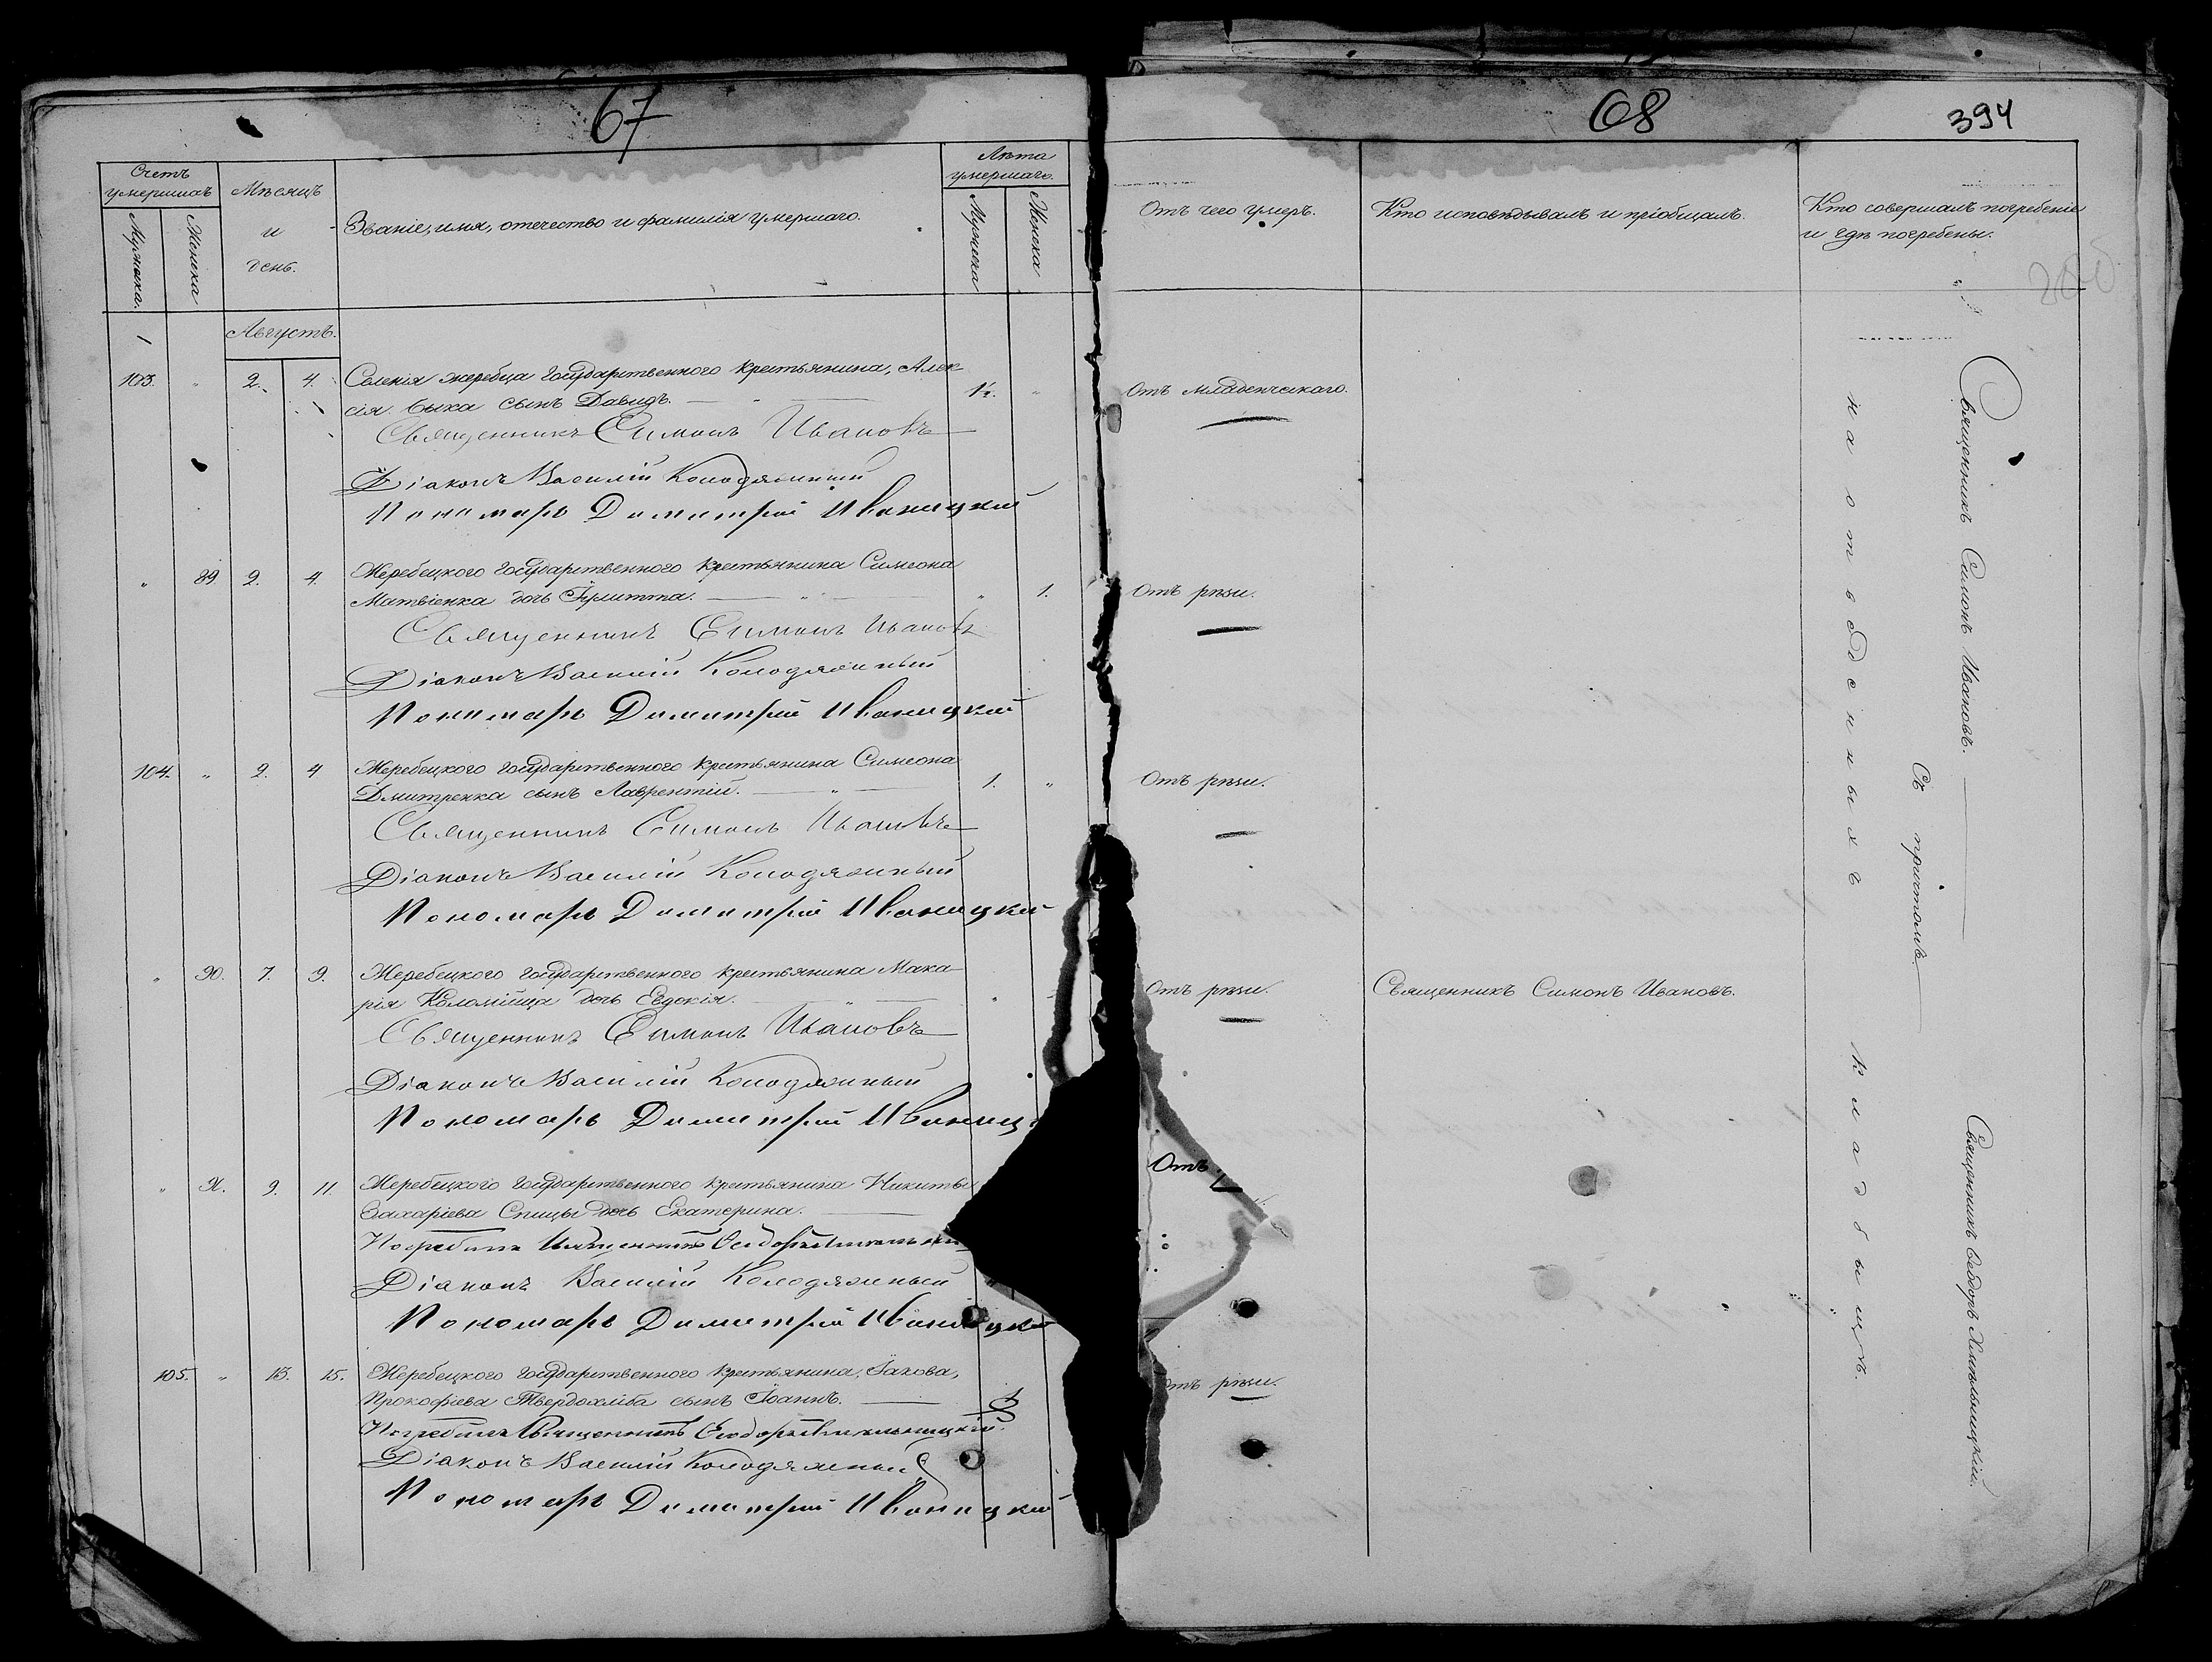 67
Счетъ
умершихъ
Мужеска.
Женска
Мѣсяцъ
и
день.
Званіе, имя, отечество и фамилія умершаго.
Лѣта
умершаго.
Мужеска
Женска
Августъ.
103. " 2. 4. Селенія жеребца государственного крестьянина, Алек
сія Быка сынъ Давидъ. — " — 1½. "
Священникъ Симонъ Ивановъ
Діаконъ Василій Колодяжный
Пономарь Димитрій Иваницкий
" 89 2. 4. Жеребецкого государственного крестьянина Симеона
Матвіенка дочь Іулитта. — " — " 1.
Священникъ Симонъ Ивановъ
Діаконъ Василій Колодяжный
Пономарь Димитрій Иваницкий
104. " 2. 4 Жеребецкого государственного крестьянина Симеона
Дмитренка сынъ Лаврентій. — " — 1. "
Священникъ Симонъ Ивановъ
Діаконъ Василій Колодяжный
Пономарь Димитрій Иваницкий
" 90. 7. 9. Жеребецкого государственного крестьянина Мака
рія Коломійца дочь Евдокія. — " — "
Священникъ Симонъ Ивановъ
Діаконъ Василій Колодяжный
Пономарь Димитрій Иваниц
" 91. 9. 11. Жеребецкого государственного крестьянина Никиты
Захаріева Спицы дочь Екатерина. —
Погребалъ Священникъ Ѳеодоръ
Діаконъ Василій Колодяжный
Пономарь Димитрій Иваницки
105. " 13. 15. Жеребецкого государственного крестьянина, Іакова,
Прокофіева Твердохліба сынъ Іоаннъ. —
Погребалъ Священникъ Ѳеодоръ Хмельницкій.
Діаконъ Василій Колодяжный
Пономарь Димитрій Иваницкий
68
394
Отъ чего умеръ.
Кто исповѣдывалъ и пріобщалъ.
Кто совершалъ погребеніе
и гдѣ погребены.
Отъ младенческаго.
Отъ рѣзи.
Отъ рѣзи.
Отъ рѣзи.
Священникъ Симонъ Ивановъ.
Отъ
Отъ рѣзи.
Священникъ Симонъ Ивановъ.
Съ причтомъ.
на отведенныхъ
кладбищѣ.
Священникъ Ѳеодоръ Хмельницкій.